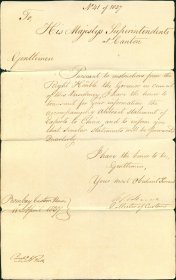 No 41 of 1837
To,
His Majestys Superintendents
at Canton
Gentlemen
Pursuant to instructions from the
Right Honble the Governor in Council
I have the honor to
transmit for your information the
accompanying Abstract Statement of
Exports to China and to inform you
that similar Statements will be forwarded
Quarterly
I have the honor to be,
Gentlemen,
Your most Obedient Servant
Bombay Custom House
1837